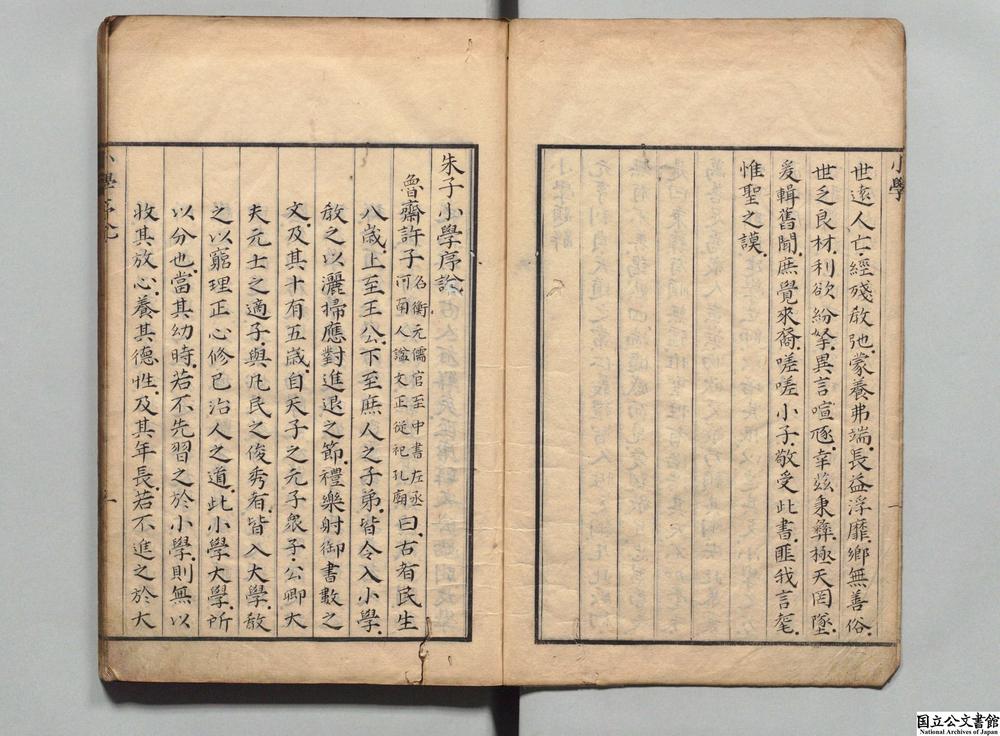 小學
世遠人亡.經殘敎弛.蒙養弗端.長益浮靡.鄉無善俗.
世乏良材.利欲紛拏.異言喧豗.幸茲秉彝.極天罔墜.
爰輯舊聞.庶覺來裔.嗟嗟小子.敬受此書.匪我言耄.
惟聖之謨.
朱子小學序論.
魯齋許子名衡.元儒官至中書左丞
河南人諡文正從祀孔廟曰.古者民生
八歲.上至王公.下至庶人之子弟.皆令入小學.
敎之以灑掃應對進退之節.禮樂射御書數之
文.及其十有五歲.自天子之元子衆子.公卿大
夫元士之適子.與凡民之俊秀者.皆入大學.敎
之以窮理正心修己治人之道.此小學大學.所
以分也.當其幼時.若不先習之於小學.則無以
收其放心.養其德性.及其年長.若不進之於大
小學序
国立公文書館
National Archives of Japan